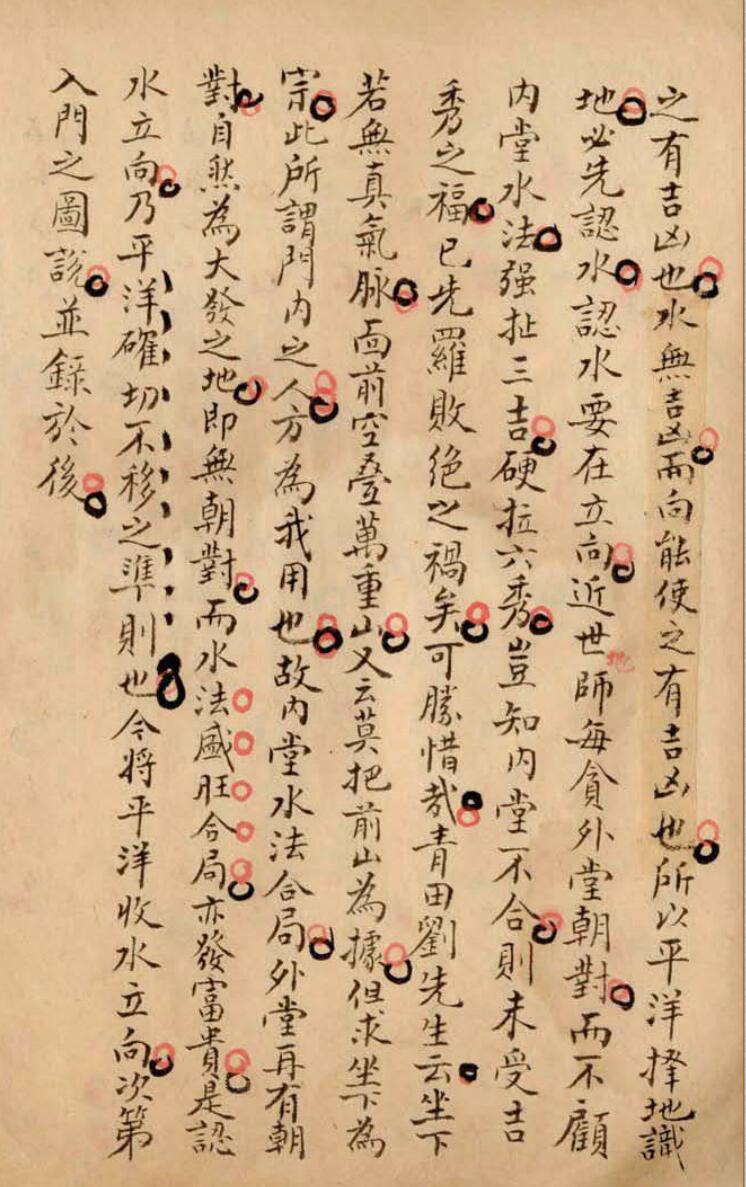 之有吉凶也水無吉凶而向能使之有吉凶也所以平洋擇地識
地必先認水認水要在立向近世地師每貪外堂朝對而不顧
内堂水法强扯三吉硬拉六秀豈知内堂一不合則未受吉
秀之福已先羅敗絶之禍矣可勝惜哉青田劉先生云坐下
若無真氣脉面前空叠萬重山又云莫把前山為據但求坐下為
宗此所謂門内之人方為我用也故内堂水法合局外堂再有朝
對自然為大發之地即無朝對而水法盛旺合局亦發富貴是認
水立向乃平洋確切不移之準則也今将平洋收水立向次第
入門之圖説並錄於後